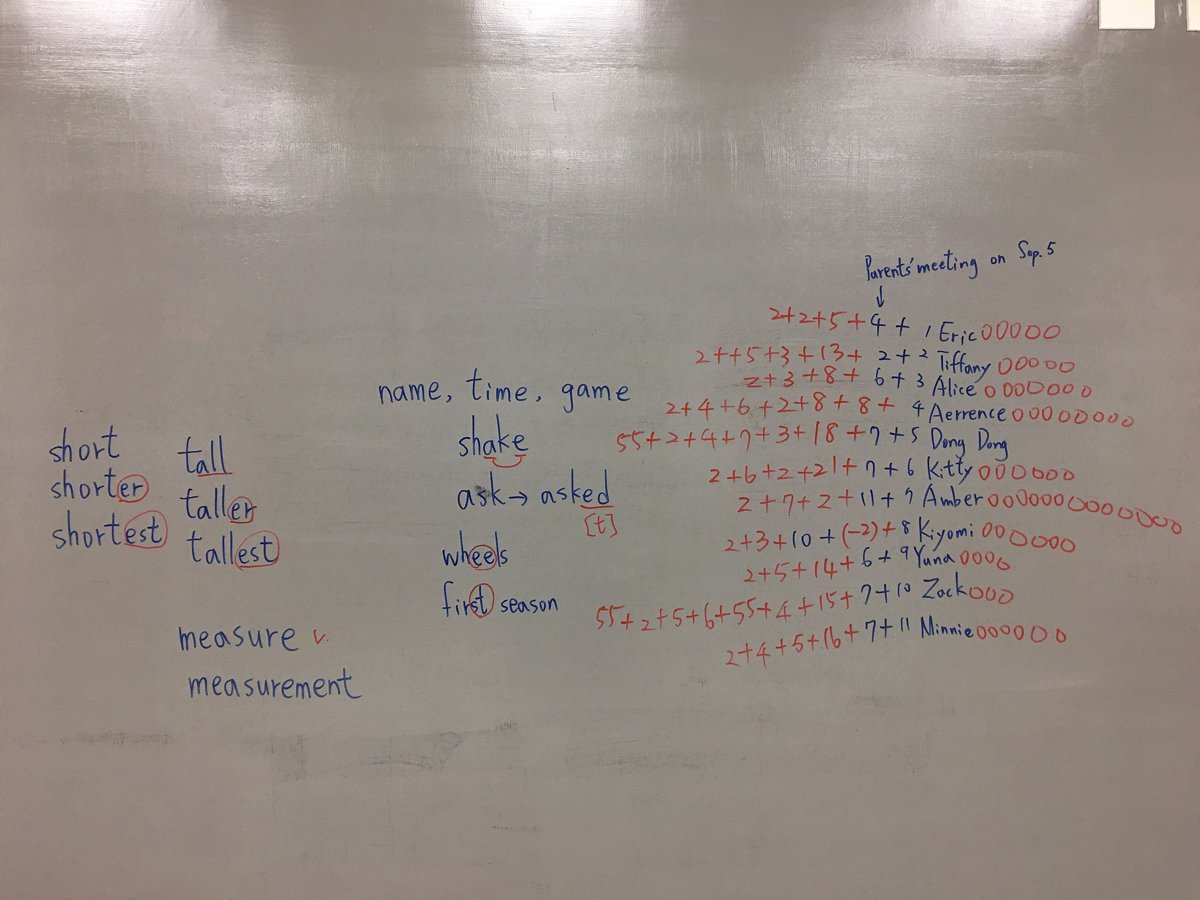 short
shorter
shortest
tall
taller
tallest
measure v.
measurement
name, time, game
shake
ask → asked
[t]
wheels
first season
Parents' meeting on Sep. 5
↓
2+2+5+4+1 Eric OOOOO
2++5+3+13+2+2 Tiffany OOOOO
2+3+8+6+3 Alice OOOOOOO
2+4+6+2+8+8+4 Aerrence OOOOOOOO
55+2+4+7+3+18+7+5 Dong Dong
2+6+2+21+7+6 Kitty OOOOOO
2+7+2+11+7 Amber OOOOOOOOOOOOO
2+3+10+(-2)+8 Kiyomi OOOOOOO
2+5+14+6+9 Yuna OOOO
55+2+5+6+55+4+15+7+10 Zack OOO
2+4+5+16+7+11 Minnie OOOOOO